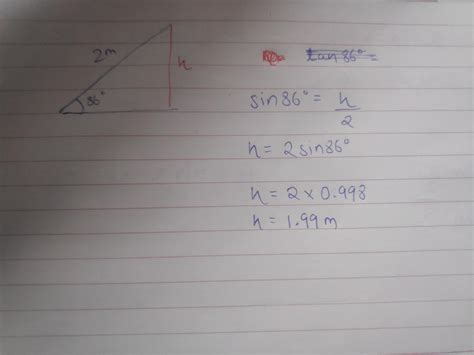 2m
h
86°
tan 86° =
sin86° = h/2
h = 2sin86°
h = 2 x 0.998
h = 1.99m